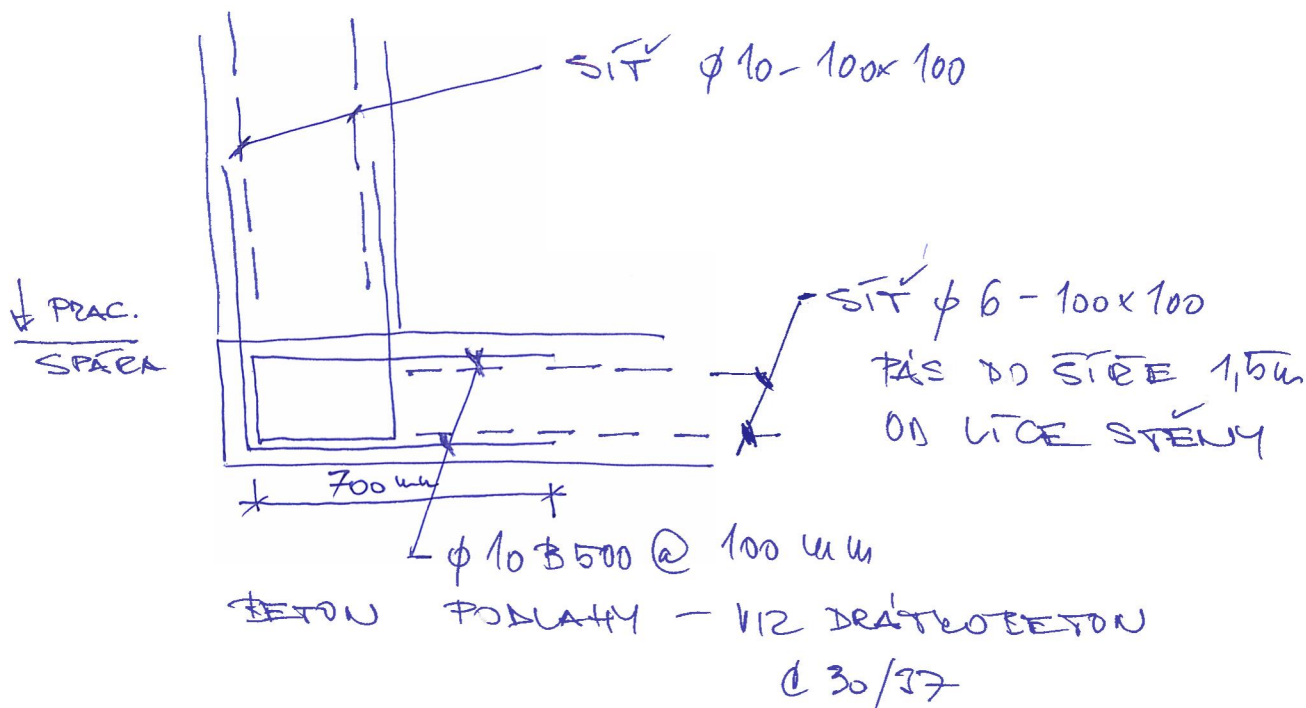 SÍŤ ϕ 10 - 100x100
PRAC.
SPÁRA
SÍŤ ϕ 6 - 100x100
PÁS DO ŠÍŘE 1,5m
OD LÍCE STĚNY
700 mm
ϕ 10 B500 @ 100 mm
BETON PODLAHY - VIZ DRÁTKOBETON
C 30/37